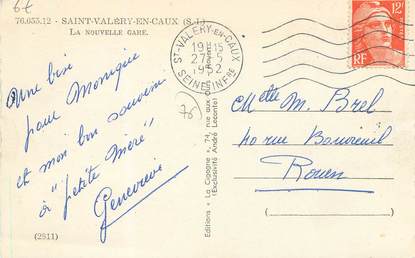 76.055.12 - SAINT-VALERY-EN-CAUX (S.-I.)
LA NOUVELLE GARE.
Une bise
pour Monique
et mon bon souvenir
à "petite Mère"
Geneviève
(2911)
ST-VALERY-EN-CAUX
19 15
27-5
1952
SEINE INFRE
12F
RF
Editions « La Cigogne », 74, rue aux
(Exclusivité André Leconte)
M. Brel
40 rue
Rouen